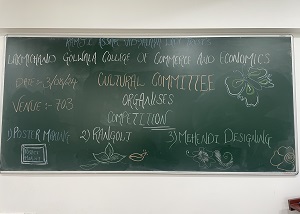 LAXMICHAND GOLWALA COLLEGE OF COMMERCE AND ECONOMICS
DATE:- 3/08/24
CULTURAL COMMITTEE
ORGANISES
VENUE:- 703
COMPETITION
1) POSTER MAKING 2) RANGOLI 3) MEHENDI DESIGNING
POSTER
MAKING